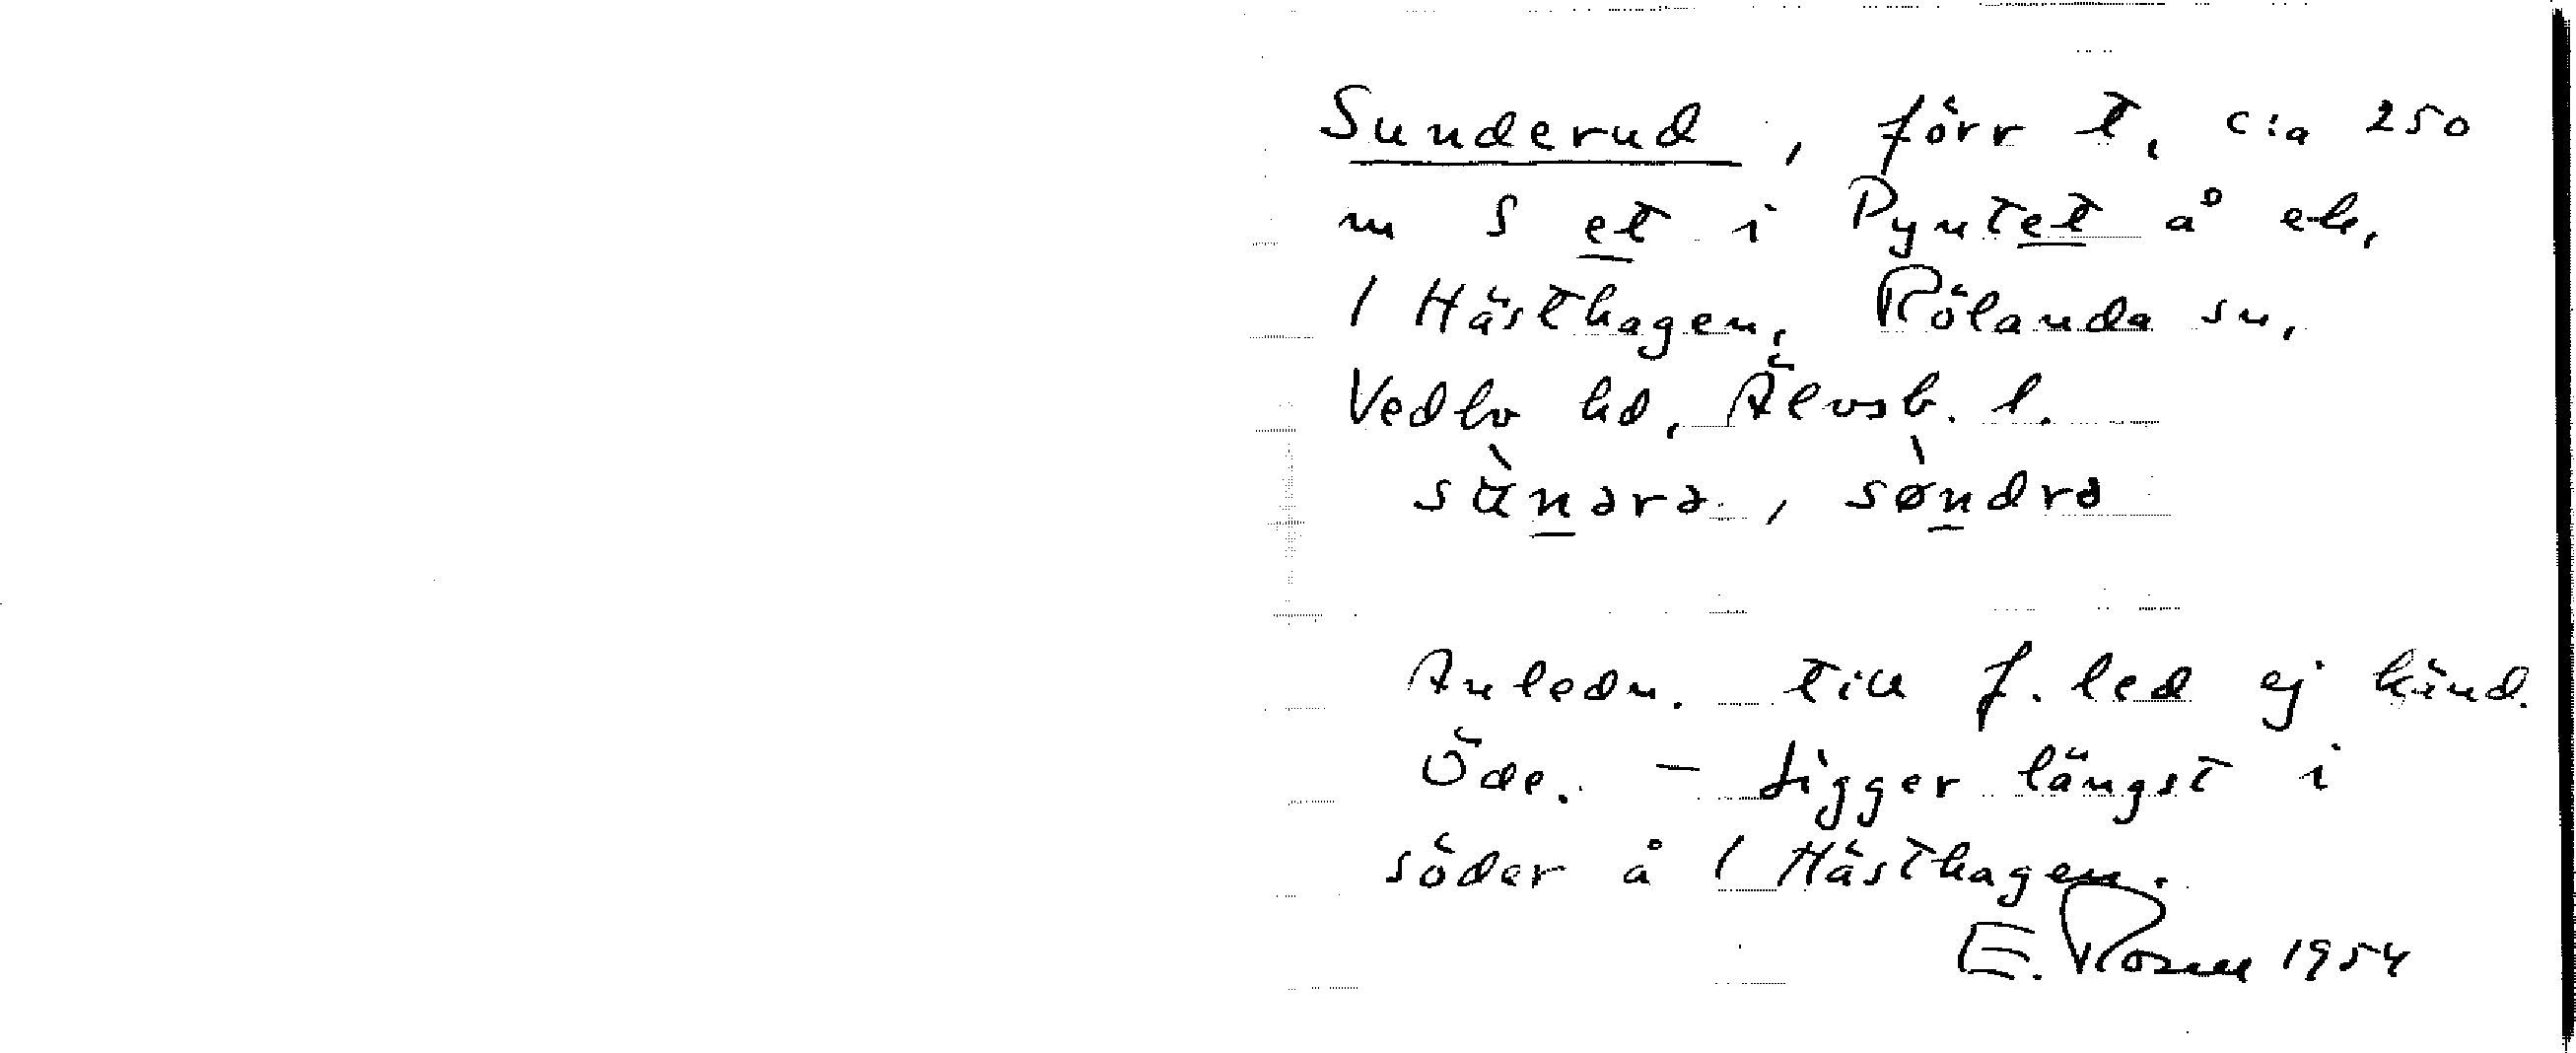 Sunderud, förr t, c:a 250
m S et i Pyntet å ek,
1 Hästhagen, Rölanda sn,
Vedbo hd, Älvsb. l.
sùnərə, sø̀ndrə
Anledn. till f. led ej känd.
Öde. - Ligger längst i
söder å 1 Hästhagen.
E. Rosell 1954